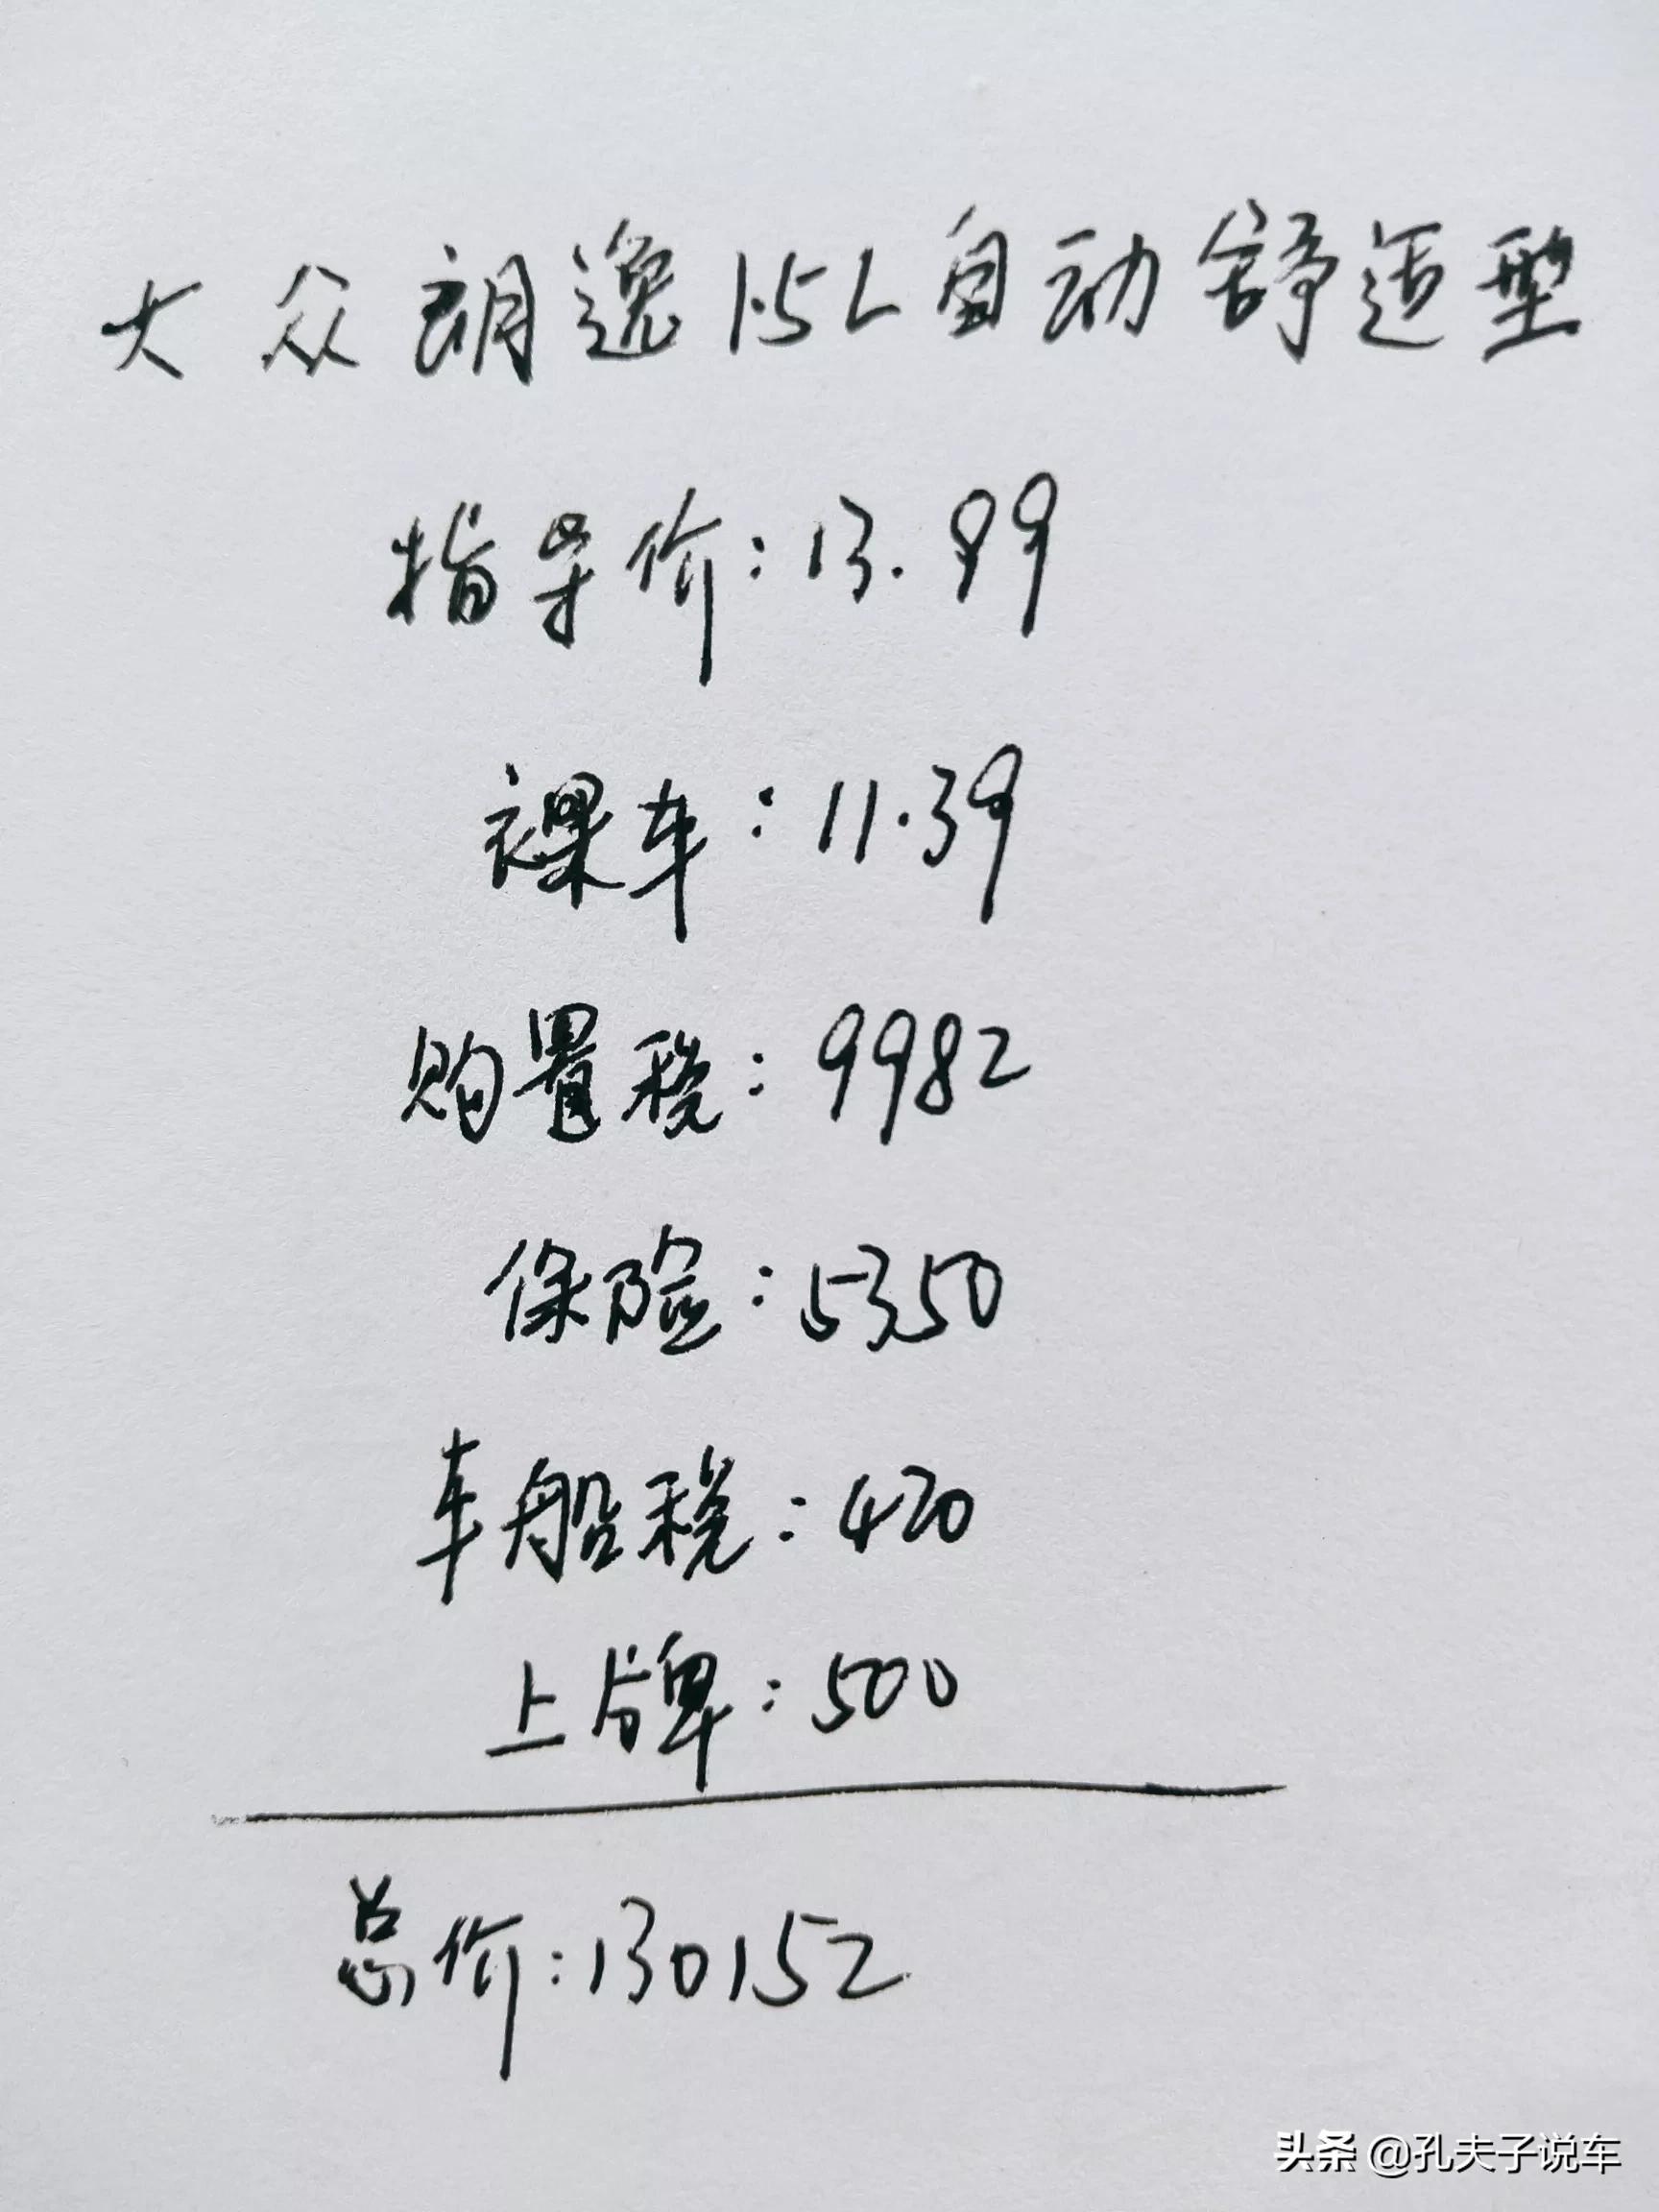 大众朗逸1.5L自动舒适型
指导价:13.99
裸车:11.39
购置税:9982
保险:5350
车船税:420
上牌:500
总价:130152
头条 @孔夫子说车